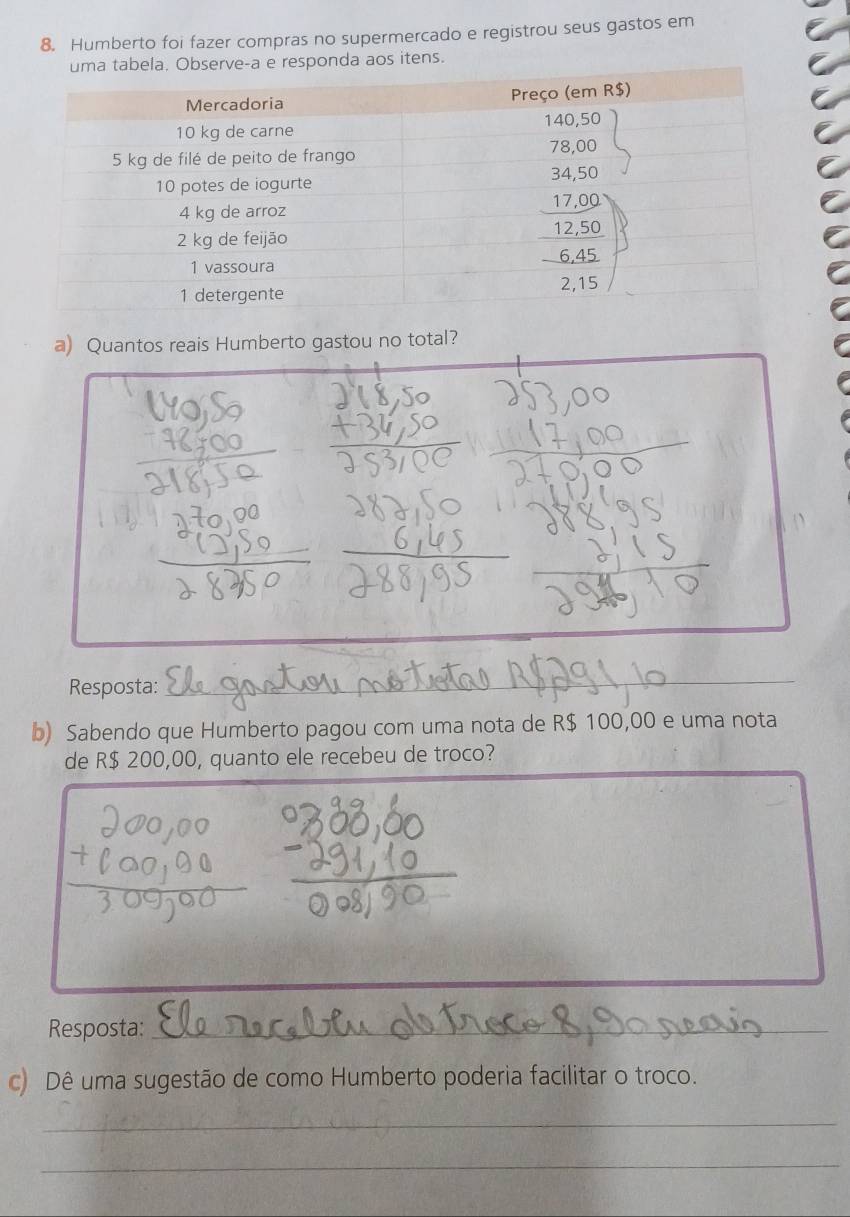 8. Humberto foi fazer compras no supermercado e registrou seus gastos em
uma tabela. Observe-a e responda aos itens.
Mercadoria Preço (em R$)
10 kg de carne 140,50
5 kg de filé de peito de frango 78,00
10 potes de iogurte 34,50
4 kg de arroz 17,00
2 kg de feijão 12,50
1 vassoura 6,45
1 detergente 2,15
a) Quantos reais Humberto gastou no total?
140,50 218,50 253,00
78,00 +34,50 17,00
218,50 253,00 270,00
270,00 282,50 288,95
12,50 6,45 2,15
28250 288,95 291,10
Resposta: Ele gastou no total R$ 291,10
b) Sabendo que Humberto pagou com uma nota de R$ 100,00 e uma nota
de R$ 200,00, quanto ele recebeu de troco?
200,00 300,00
+100,00 -291,10
300,00 008,90
Resposta: Ele recebeu de troco 8,90 reais
c) Dê uma sugestão de como Humberto poderia facilitar o troco.